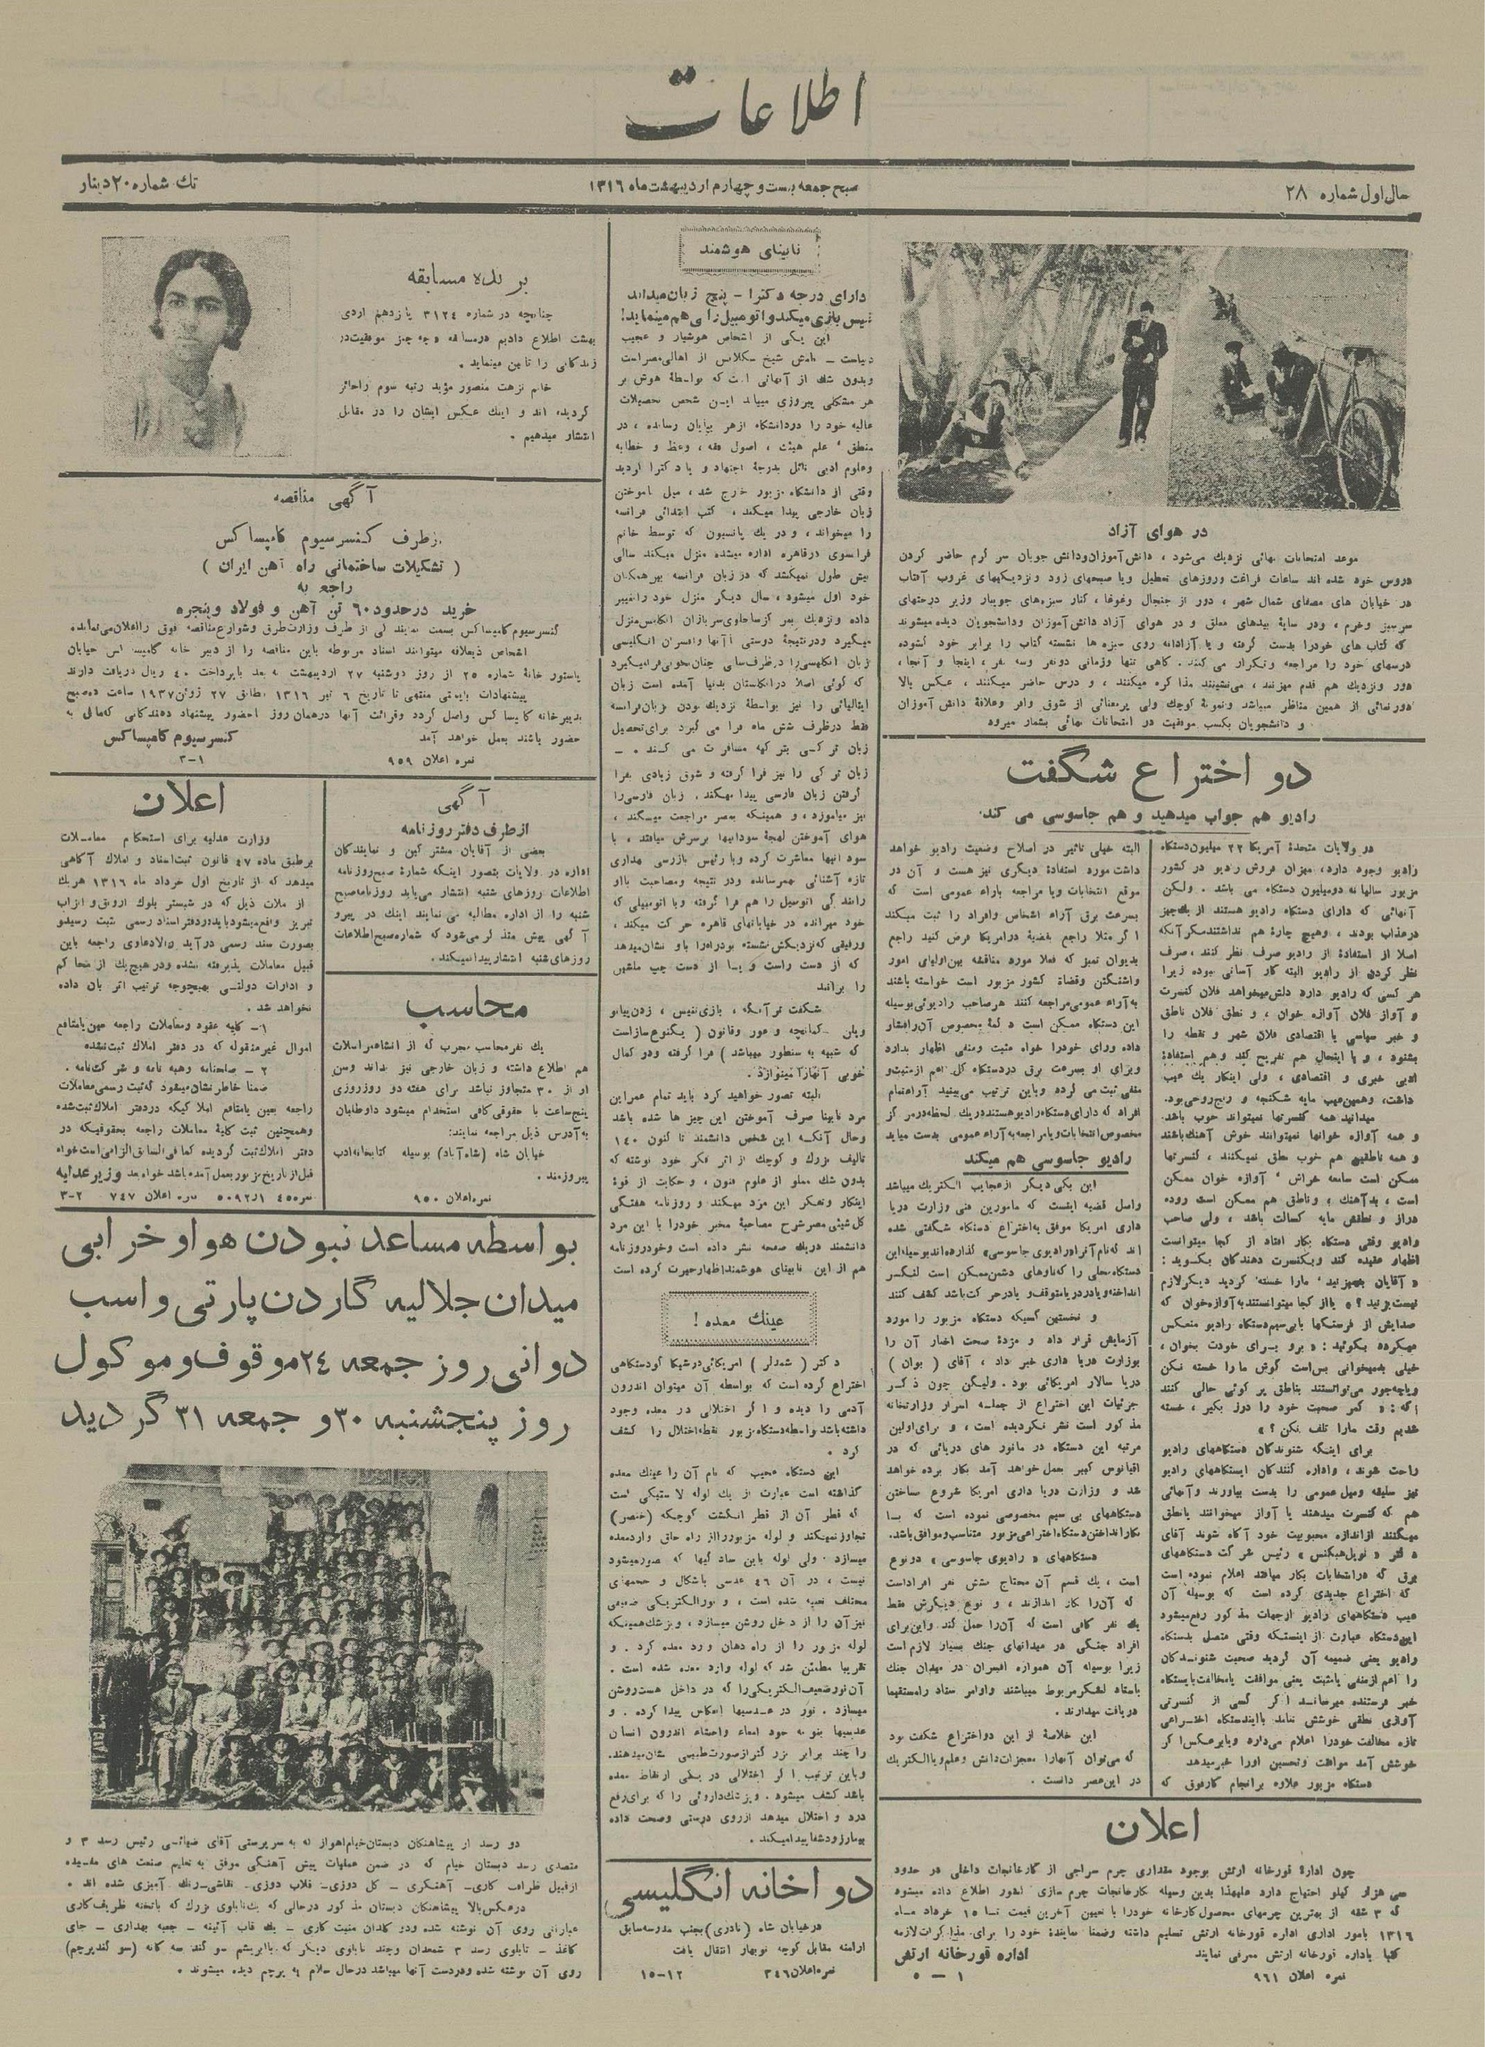 اطلاعات
سال اول شماره ۲۸
صبح جمعه بیست و چهارم اردیبهشت ماه ۱۳۱۶
تك شماره ۲۰ دینار
در هوای آزاد
موعد امتحانات نهائی نزدیك می‌شود ، دانش‌آموزان و دانش جویان سر گرم حاضر کردن
دروس خود شده اند ساعات فراغت و روزهای تعطیل و یا صبحهای زود و نزدیکیهای غروب آفتاب
در خیابان های مصفای شمال شهر ، دور از جنجال و غوغا ، کنار سبزه‌های جویبار و زیر درختهای
سرسبز و خرم ، و در سایهٔ بیدهای معلق و در هوای آزاد دانش آموزان و دانشجویان دیده میشوند
که کتاب های خود را بدست گرفته و یا آزادانه روی سبزه ها نشسته کتاب را برابر خود گشوده
درسهای خود را مراجعه و تکرار می کنند . گاهی تنها و زمانی دو نفر و سه نفر ، اینجا و آنجا ،
دور و نزدیك هم قدم میزنند ، می‌نشینند مذاکره میکنند ، و درس حاضر میکنند ، عکس بالا
دورنمائی از همین مناظر میباشد و نمونهٔ کوچك ولی پرمعنائی از شوق وافر و علاقهٔ دانش آموزان
و دانشجویان بکسب موفقیت در امتحانات نهائی بشمار میرود
دو اختراع شگفت
رادیو هم جواب میدهید و هم جاسوسی می کند.
در ولایات متحدهٔ آمریکا ۲۲ میلیون دستگاه
رادیو وجود دارد، میزان فروش رادیو در کشور
مزبور سالیانه دو میلیون دستگاه می باشد . ولیکن
آنهائی که دارای دستگاه رادیو هستند از یك چیز
در عذاب بودند ، و هیچ چارهٔ هم نداشتند مگر آنکه
اصلا از استفادهٔ از رادیو صرف نظر کنند ، صرف
نظر کردن از رادیو البته کار آسانی نبوده زیرا
هر کسی که رادیو دارد دلش میخواهد فلان کنسرت
و آواز فلان آوازه خوان ، و نطق فلان ناطق
و خبر سیاسی یا اقتصادی فلان شهر و نقطه را
بشنود ، و با اینحال هم تفریح کند و هم استفادهٔ
ادبی خبری و اقتصادی ، ولی اینکار یك عیب
داشت، و همین عیب مایه شکنجه و رنج روحی بود.
میدانید همه کنسرتها نمیتواند خوب باشد.
و همه آوازه خوانها نمیتوانند خوش آهنگ باشند
و همه ناطقین هم خوب نطق نمیکنند ، کنسرتها
ممکن است سامعه خراش ، آوازه خوان ممکن
است ، بد آهنك ، و ناطق هم ممکن است روده
دراز و نطقش مایه کسالت باشد ، ولی صاحب
رادیو وقتی دستگاه بکار افتاد از کجا میتوانست
اظهار عقیده کند و بکنسرت دهندگان بگوید :
« آقایان بس کنید ، مارا خسته کردید دیگر لازم
نیست بزنید ؟ » یا از کجا میتوانستند به آوازه خوان که
صدایش از فرسنگها با بی‌سیم دستگاه رادیو منعکس
میکرده بگوئید : « برو برای خودت بخوان ،
خیلی بد میخوانی بس است گوش ما را خسته نکن
و یا چه جور می‌توانستند بناطق پر گوئی حالی کنند
که : « کمر صحبت خود را دوز بگیر ، خسته
شدیم وقت مارا تلف نکن ؟ »
برای اینکه شنوندگان دستگاههای رادیو
راحت شوند ، و اداره کنندگان ایستگاههای رادیو
نیز سلیقه و میل عمومی را بدست بیاورند و آنهائی
هم که کنسرت میدهند یا آواز میخوانند یا نطق
میکنند از اندازه محبوبیت خود آگاه شوند آقای
دکتر « نویل هبکنس » رئیس شرکت دستگاههای
برق که در انتخابات بکار میافتد اعلام نموده است
که اختراع جدیدی کرده است که بوسیله آن
عیب دستگاههای رادیو از جهات مذکور رفع میشود
این دستگاه عبارت از اینستکه وقتی متصل بدستگاه
رادیو یعنی ضمیمه آن گردید صحبت شنوندگان
را اعم از منفی یا مثبت یعنی موافقت یا مخالفت با ایستگاه
خبر فرستنده میرساند اگر کسی از کنسرتی
آوازی نطقی خوشش نیامد با ایندستگاه اختراعی
تازه مخالفت خود را اعلام می‌دارد و یا برعکس اگر
خوشش آمد موافقت و تحسین او را خبر میدهد
دستگاه مزبور علاوه بر انجام کار فوق که
البته خیلی تاثیر در اصلاح وضعیت رادیو خواهد
داشت مورد استفادهٔ دیگری نیز هست و آن در
موقع انتخابات و یا مراجعه باراء عمومی است که
بسرعت برق آراء اشخاص و افراد را ثبت میکند
اگر مثلا راجع بقضیهٔ در امریکا فرض کنید راجع
بدیوان تمیز که فعلا مورد مناقشه بین اولیای امور
واشنگتن و قضاة کشور مزبور است خواسته باشند
به آراء عمومی مراجعه کنند هر صاحب رادیوئی بوسیله
این دستگاه ممکن است دکمهٔ مخصوص آن را فشار
داده و رای خود را خواه مثبت و منفی اظهار بدارد
و رای او بسرعت برق در دستگاه کل اعم از مثبت و
منفی ثبت می گردد و باین ترتیب می‌بینید آراء تمام
افراد که دارای دستگاه رادیو هستند در یك لحظه در مرکز
مخصوص انتخابات و یا مراجعه به آراء عمومی بدست میاید
رادیو جاسوسی هم میکند
این یکی دیگر از عجایب الکتریك میباشد
و اصل قضیه اینست که مامورین فنی وزارت دریا
داری امریکا موفق به اختراع دستگاه شگفتی شده
اند که نام آنرا « رادیوی جاسوسی » گذارده‌اند بوسیله این
دستگاه محلی را که ناوهای دشمن ممکن است لنگر
انداخته و یا در دریا متوقف و یا در حرکت باشد کشف کنند
و نخستین کسیکه دستگاه مزبور را مورد
آزمایش قرار داد و مژدهٔ صحت اخبار آن را
بوزارت دریا داری خبر داد ، آقای ( بوان )
دریا سالار امریکائی بود . ولیکن چون ذکر
جزئیات این اختراع از جمله اسرار وزارتخانه
مذکور است نشر نگردیده است ، و برای اولین
مرتبه این دستگاه در مانور های دریائی که در
اقیانوس کبیر بعمل خواهد آمد بکار برده خواهد
شد و وزارت دریا داری امریکا شروع ساختن
دستگاههای بی سیم مخصوصی نموده است که با
بکار انداختن دستگاه اختراعی مزبور متناسب و موافق باشد.
دستگاههای « رادیوی جاسوسی » دو نوع
است ، یك قسم آن محتاج شش نفر افراد است
که آن را کار اندازند ، و نوع دیگرش فقط
یك نفر کافی است که آن را حمل کند و این برای
افراد جنگی در میدانهای جنك بسیار لازم است
زیرا بوسیله آن همواره افسران در میدان جنك
با ستاد لشگر مربوط میباشند و اوامر ستاد را مستقیما
دریافت میدارند .
این خلاصهٔ از این دو اختراع شگفت بود
که می‌توان آنها را معجزات دانش و علم و یا الکتریك
در این عصر دانست .
اعلان
چون ادارهٔ قورخانه ارتش بوجود مقداری چرم سراجی از کارخانجات داخلی در حدود
سی هزار کیلو احتیاج دارد علیهذا بدین وسیله کارخانجات چرم سازی کشور اطلاع داده میشود
که ۳ شقه از بهترین چرمهای محصول کارخانه خود را با تعیین آخرین قیمت تا ۱۵ خرداد ماه
۱۳۱۶ بامور اداری اداره قورخانه ارتش تسلیم داشته و ضمنا نمایندهٔ خود را برای مذاکرات لازمه
کتبا باداره قورخانه ارتش معرفی نمایند
اداره قورخانه ارتش
نمره اعلان ۹۶۱
۱ — ۵
نابینای هوشمند
دارای درجه دکترا - پنج زبان میداند
تنیس بازی میکند و اتومبیل رانی هم مینماید!
این یکی از اشخاص هوشیار و عجیب
دنیاست — نامش شیخ از اهالی مصر است
و بدون شك از آنهائی است که بواسطهٔ هوش بر
هر مشکلی پیروزی مییابد این شخص تحصیلات
عالیه خود را در دانشگاه ازهر بپایان رسانده ، در
منطق ، علم هیئت ، اصول فقه ، وعظ و خطابه
و علوم ادبی نائل بدرجهٔ اجتهاد و یا دکترا گردید
وقتی از دانشگاه مزبور خارج شد ، میل باموختن
زبان خارجی پیدا میکند ، کتب ابتدائی فرانسه
را میخواند ، و در یك پانسیون که توسط خانم
فرانسوی در قاهره اداره میشده منزل میکند سالی
بیش طول نمیکشد که در زبان فرانسه بین همگنان
خود اول میشود ، سال دیگر منزل خود را تغییر
داده و نزدیك بمرکز ساخلوی سربازان انگلیس منزل
میگیرد و در نتیجهٔ دوستی با آنها و افسران انگلیسی
زبان انگلیسی را در ظرف سالی چنان بخوبی فرا میگیرد
که گوئی اصلا در انگلستان بدنیا آمده است زبان
ایتالیائی را نیز بواسطهٔ نزدیك بودن بزبان فرانسه
فقط در ظرف شش ماه فرا می گیرد برای تحصیل
زبان ترکی بترکیه مسافرت می کند . —
زبان ترکی را نیز فرا گرفته و شوق زیادی بفرا
گرفتن زبان فارسی پیدا میکند، زبان فارسی را
نیز میاموزد ، و همینکه بمصر مراجعت میکند ،
هوای آموختن لهجهٔ سودانیها برسرش میافتد ، با
سودانیها معاشرت کرده و با رئیس بازرسی بهداری
تازه آشنائی بهمرسانده و در نتیجه و مصاحبت با او
رانندگی اتومبیل را هم فرا گرفته و با اتومبیلی که
خود میرانده در خیابانهای قاهره حرکت میکند ،
و رفیقی که نزدیکش نشسته بوده راه را باو نشان میدهد
که از دست راست و یا از دست چپ ماشین
را براند
شگفت تر آنکه ، بازی تنیس ، زدن پیانو
ویلن کمانچه و عود و قانون ( یکنوع ساز است
که شبیه به سنطور میباشد ) فرا گرفته و در کمال
خوبی آنها را مینوازد .
البته تصور خواهید کرد باید تمام عمر این
مرد نابینا صرف آموختن این چیز ها شده باشد
و حال آنکه این شخص دانشمند تا کنون ۱۴۰
تالیف بزرك و کوچك از اثر فکر خود نوشته که
بدون شك مملو از علوم فنون ، و حکایت از قوهٔ
ابتکار و تفکر این مرد میکند و روزنامه هفتگی
کل‌شیئی مصر شرح مصاحبهٔ مخبر خود را با این مرد
دانشمند در یك صفحه نشر داده است و خود روزنامه
هم از این نابینای هوشمند اظهار حیرت کرده است
عینك معده !
دکتر ( شندلر ) امریکائی در شیکاگو دستگاهی
اختراع کرده است که بواسطه آن میتوان اندرون
آدمی را دیده و اگر اختلالی در معده وجود
داشته باشد بواسطه دستگاه مزبور نقطه اختلال را کشف
کرد .
این دستگاه عجیب که نام آن را عینك معده
گذاشته است عبارت از یك لوله لاستیکی است
که قطر آن از قطر انگشت کوچکه (خنصر)
تجاوز نمیکند و لوله مزبور را از راه حلق وارد معده
میسازد . ولی لوله باین سادگیها که تصور میشود
نیست ، در آن ۴۶ عدسی باشکال و حجمهای
مختلف تعبیه شده است ، و نور الکتریکی ضعیفی
نیز آن را از داخل روشن میسازد ، و پزشك همینکه
لوله مزبور را از راه دهان وارد معده کرد . و
تقریبا مطمئن شد که لوله وارد معده شده است .
آن نور ضعیف الکتریکی را که در داخل هست روشن
میسازد . نور در عدسیها انعکاس پیدا کرده . و
عدسیها بنوبه خود امعاء و احشاء اندرون انسان
را چند برابر بزرگتر از صورت طبیعی نشان میدهند.
و باین ترتیب اگر اختلالی در یکی از نقاط معده
باشد کشف میشود . و پزشك داروئی را که برای رفع
درد و اختلال میدهد از روی درستی و صحت داده
بیمار زود شفا پیدا میکند .
دواخانه انگلیسی
در خیابان شاه (نادری) بجنب مدرسه سابق
ارامنه مقابل کوچه نوبهار انتقال یافت
نمره اعلان ۳۴۶
۱۲-۱۵
برنده مسابقه
چنانچه در شماره ۳۱۲۴ یازدهم اردی
بهشت اطلاع دادیم در مسابقه « چه چیز موفقیت در
زندگانی را تامین مینماید .
خانم نزهت منصور مؤید رتبه سوم را حائز
گردیده اند و اینك عکس ایشان را در مقابل
انتشار میدهیم .
آگهی مناقصه
از طرف کنسرسیوم کامپساکس
( تشکیلات ساختمانی راه آهن ایران )
راجع به
خرید در حدود ۶۰ تن آهن و فولاد و پنجره
کنسرسیوم کامپساکس بسمت نمایندگی از طرف وزارت طرق و شوارع مناقصه فوق را اعلان می‌نماید
اشخاص ذیعلاقه میتوانند اسناد مربوطه باین مناقصه را از دبیر خانه کامپساکس خیابان
پاستور خانهٔ شماره ۲۵ از روز دوشنبه ۲۷ اردیبهشت به بعد با پرداخت ۴۰ ریال دریافت دارند
پیشنهادات بایستی منتهی تا تاریخ ۶ تیر ۱۳۱۶ مطابق ۲۷ ژوئن ۱۹۳۷ ساعت ده صبح
بدبیرخانه کامپساکس واصل گردد و قرائت آنها در همان روز با حضور پیشنهاد دهندگانی که مایل به
حضور باشند بعمل خواهد آمد
کنسرسیوم کامپساکس
نمره اعلان ۹۵۹
۱-۳
آگهی
از طرف دفتر روزنامه
بعضی از آقایان مشترکین و نمایندگان
اداره در ولایات بتصور اینکه شمارهٔ صبح روزنامه
اطلاعات روزهای شنبه انتشار می‌یابد روزنامه صبح
شنبه را از اداره مطالبه می نمایند اینك در پیرو
آگهی پیش متذکر می‌شود که شماره صبح اطلاعات
روزهای شنبه انتشار پیدا نمیکند .
محاسب
یك نفر محاسب مجرب که از انشاء مراسلات
هم اطلاع داشته و زبان خارجی نیز بداند و سن
او از ۳۰ متجاوز نباشد برای هفته دو روز روزی
پنج ساعت با حقوق کافی استخدام میشود داوطلبان
به آدرس ذیل مراجعه نمایند:
خیابان شاه (شاه‌آباد) بوسیله کتابخانه ادب
پیروزمند .
نمره اعلان ۹۵۰
اعلان
وزارت عدلیه برای استحکام معاملات
برطبق ماده ۴۷ قانون ثبت اسناد و املاك آگاهی
میدهد که از تاریخ اول خرداد ماه ۱۳۱۶ هر یك
از محلات ذیل که در شبستر بلوك ارونق و انزاب
تبریز واقع میشود باید در دفتر اسناد رسمی ثبت رسیده و
بصورت سند رسمی در آید و الا دعاوی راجعه باین
قبیل معاملات پذیرفته نشده و در هیچ یك از محاکم
و ادارات دولتی بهیچوجه ترتیب اثر بان داده
نخواهد شد .
۱- کلیه عقود و معاملات راجعه بعین یا منافع
اموال غیر منقوله که در دفتر املاك ثبت نشده
۲ - صلحنامه و هبه نامه و شرکت نامه .
ضمنا خاطر نشان میشود که ثبت رسمی معاملات
راجعه بعین یا منافع املاکیکه در دفتر املاك ثبت شده
و همچنین ثبت کلیهٔ معاملات راجعه بحقوقیکه در
دفتر املاك ثبت گردیده کما فی السابق الزامی است خواه
قبل از تاریخ مزبور بعمل آمده باشد خواه بعد وزیر عدلیه
نمره ۴۵۰ ۵۰۹۲٫۱ نمره اعلان ۷۴۷ ۲-۳
بواسطه مساعد نبودن هوا و خرابی
میدان جلالیه گاردن پارتی و اسب
دوانی روز جمعه ۲۴ موقوف و موکول
روز پنجشنبه ۳۰ و جمعه ۳۱ گردید
دو رسد از پیشاهنگان دبستان خیام اهواز که به سرپرستی آقای ضیائی رئیس رسد ۳ و
متصدی رسد دبستان خیام که در ضمن عملیات پیش آهنگی موفق به تعلیم صنعت های مفیده
از قبیل ظرافت کاری- آهنگری - گل دوزی- قلاب دوزی. نقاشی-رنك آمیزی شده اند .
در عکس بالا پیشاهنگان دبستان مذکور در حالی که یك تابلوی بزرك که با تخته ظریف کاری
عباراتی روی آن نوشته شده و در گلدان منبت کاری - یك قاب آئینه - جعبه بهداری - جای
کاغذ - تابلوی رسد ۳ شمعدان و چند تابلوی دیگر که با ابریشم سوگند سه گانه (سوگند پرچم)
روی آن نوشته شده و در دست آنها میباشد در حال سلام به پرچم دیده میشوند .